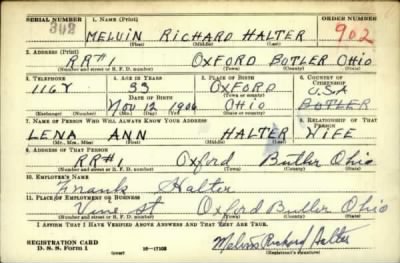 SERIAL NUMBER 1. NAME (Print) ORDER NUMBER
302 MELVIN RICHARD HALTER 902
(First) (Middle) (Last)
2. ADDRESS (Print)
RR#1 OXFORD BUTLER OHIO
(Number and street or R. F. D. number) (Town) (County) (State)
3. TELEPHONE 4. AGE IN YEARS 5. PLACE OF BIRTH 6. COUNTRY OF CITIZENSHIP
116Y 33 OXFORD U.S.A
DATE OF BIRTH (Town or county)
NOV 12 1906 OHIO BUTLER
(Exchange) (Number) (Mo.) (Day) (Yr.) (State or country)
7. NAME OF PERSON WHO WILL ALWAYS KNOW YOUR ADDRESS 8. RELATIONSHIP OF THAT PERSON
LENA ANN HALTER WIFE
(Mr., Mrs., Miss) (First) (Middle) (Last)
9. ADDRESS OF THAT PERSON
RR#1 Oxford Butler Ohio
(Number and street or R. F. D. number) (Town) (County) (State)
10. EMPLOYER'S NAME
Frank Halter
11. PLACE OF EMPLOYMENT OR BUSINESS
Vine St Oxford Butler Ohio
(Number and street or R. F. D. number) (Town) (County) (State)
I AFFIRM THAT I HAVE VERIFIED ABOVE ANSWERS AND THAT THEY ARE TRUE.
REGISTRATION CARD
D. S. S. Form 1 (over) 16—17105 Melvin Richard Halter